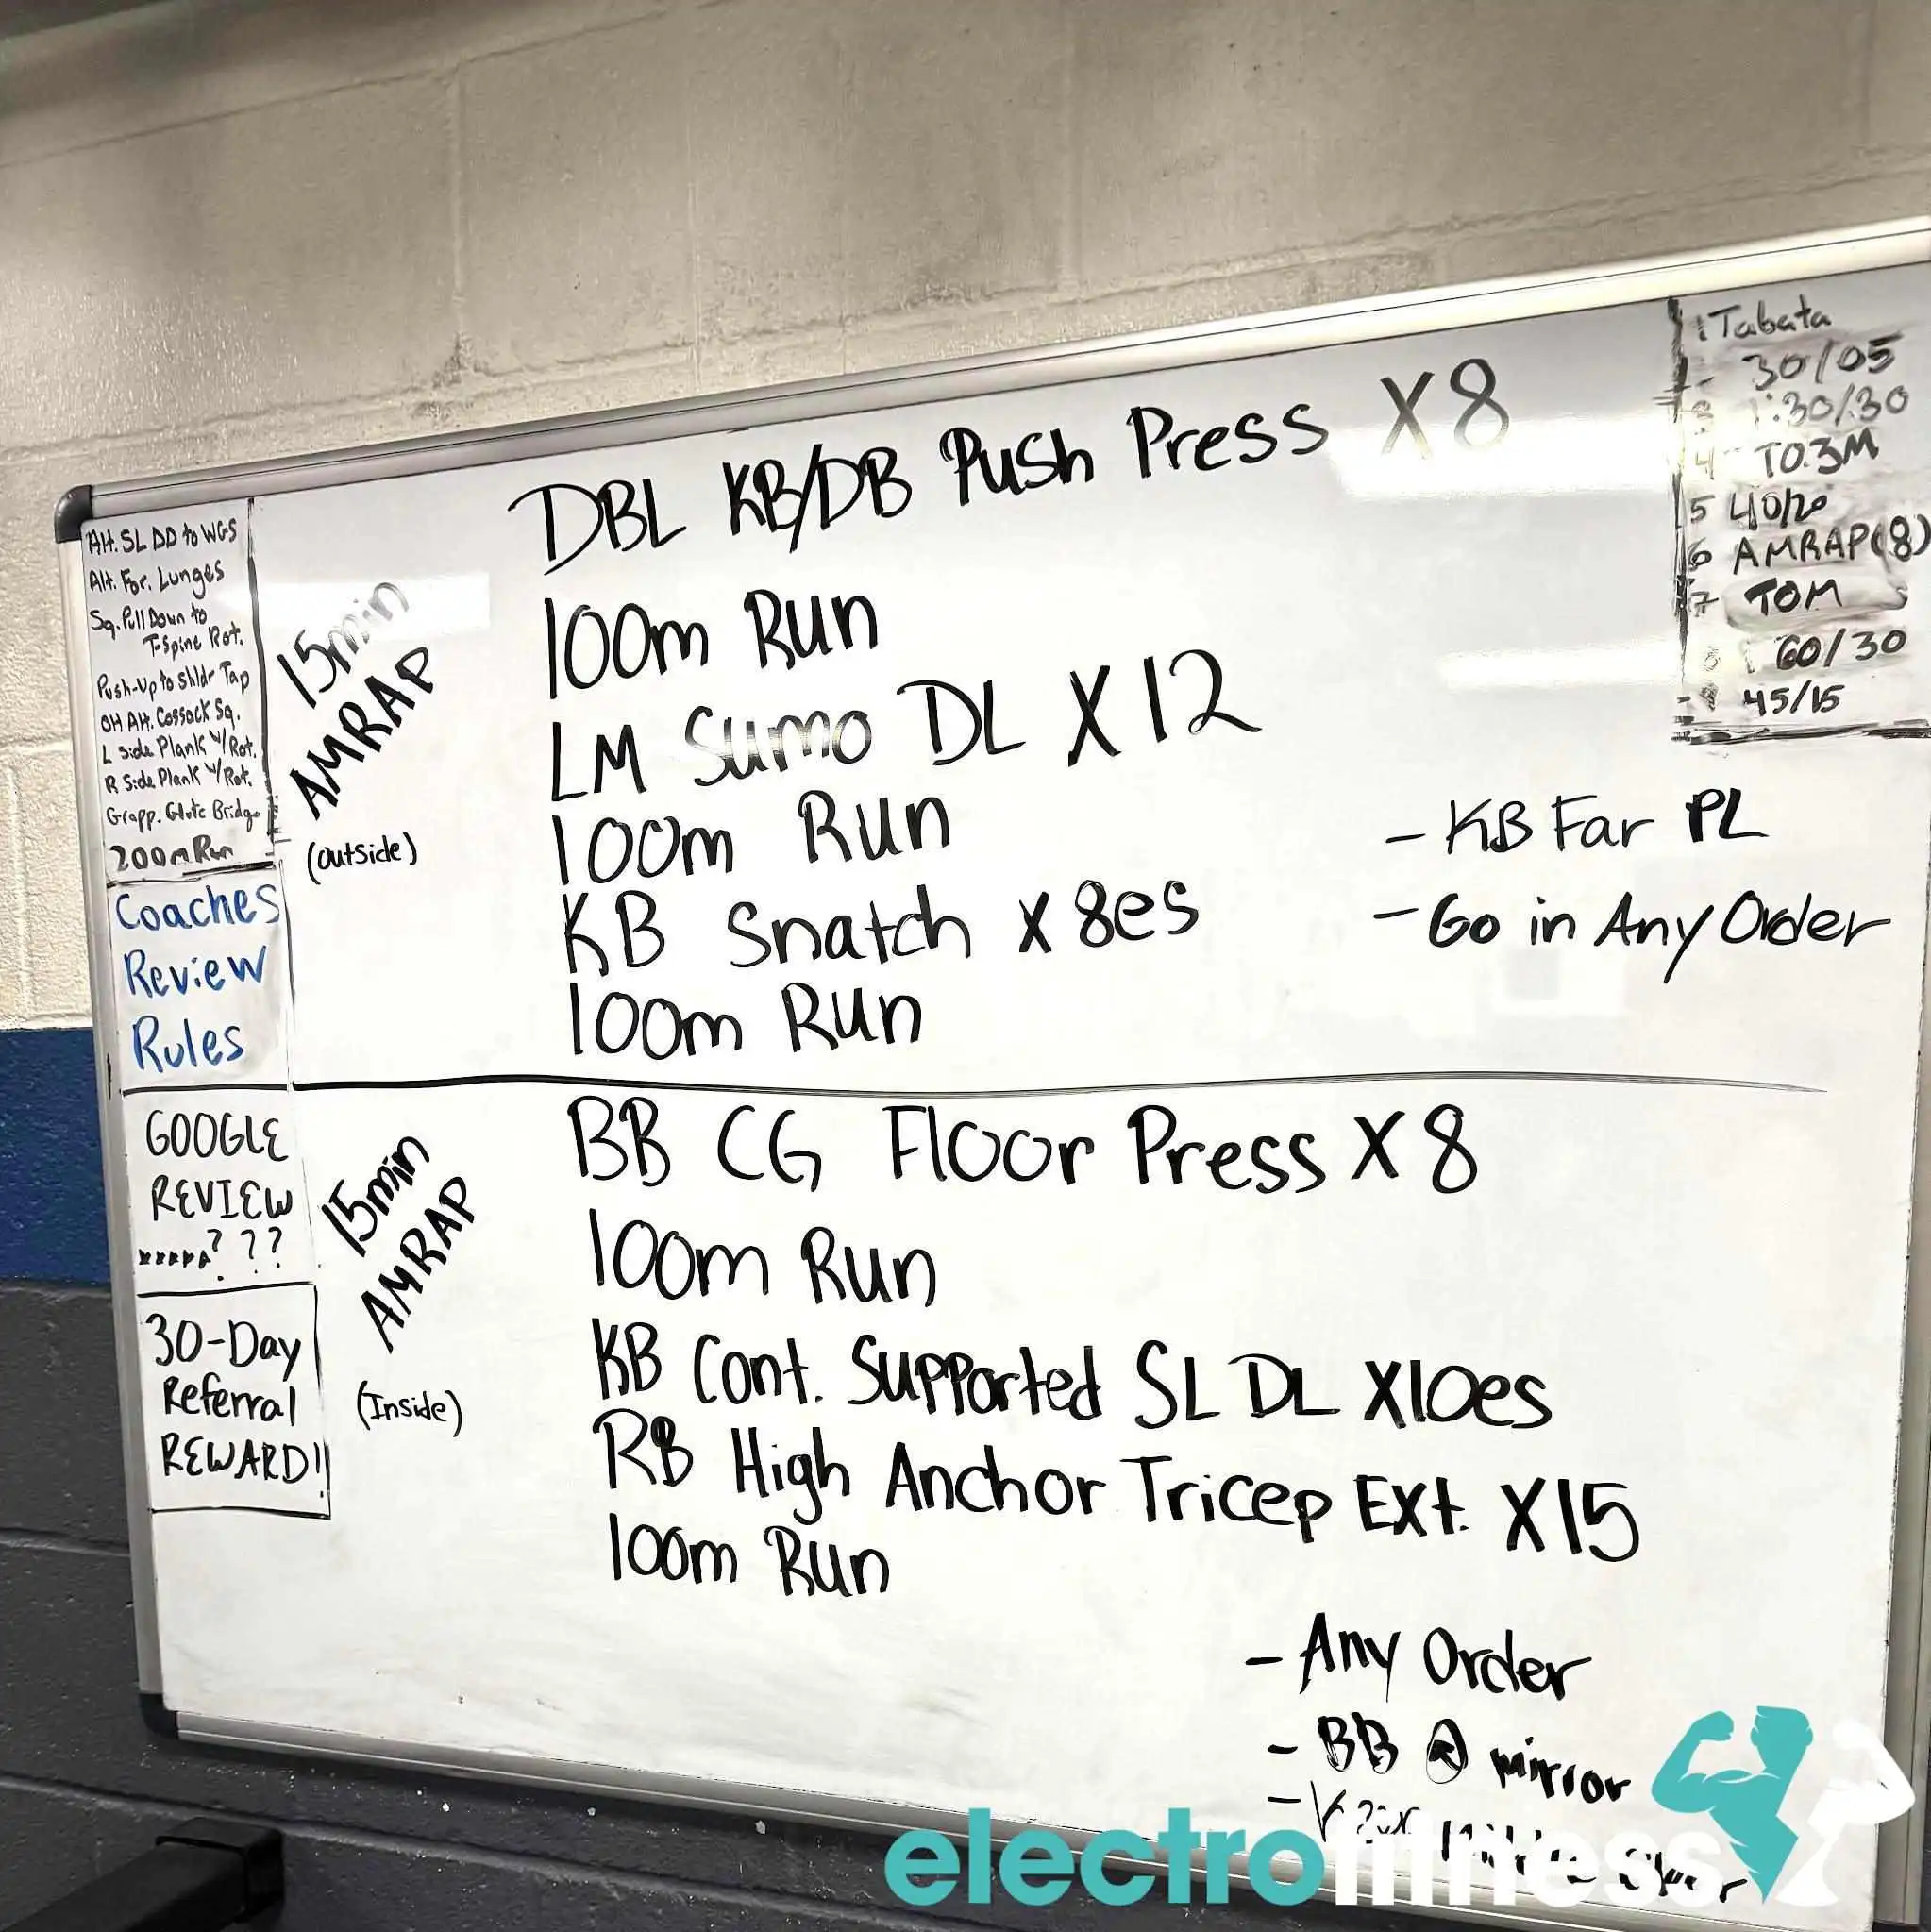 Alt. SL DD to WGS
Alt. For. Lunges
Sq. Pull Down to
T-Spine Rot.
Push-Up to Shldr Tap
OH Alt. Cossack Sq.
L Side Plank w/ Rot.
R Side Plank w/ Rot.
Grapp. Glute Bridge
200m Run
Coaches
Review
Rules
GOOGLE
REVIEW
???
30-Day
Referral
REWARD!!
15min
AMRAP
(outside)
DBL KB/DB Push Press X8
100m Run
LM Sumo DL X12
100m Run
KB Snatch x 8es
100m Run
- KB Far PL
- Go in Any Order
1 Tabata
30/05
3 :30/30
4 TO.3M
5 40/20
6 AMRAP(8)
7 TOM
8 60/30
9 45/15
15min
AMRAP
(Inside)
BB CG Floor Press X8
100m Run
KB Cont. Supported SL DL X10es
RB High Anchor Tricep Ext. X15
100m Run
- Any Order
- BB @ mirror
electrofitness